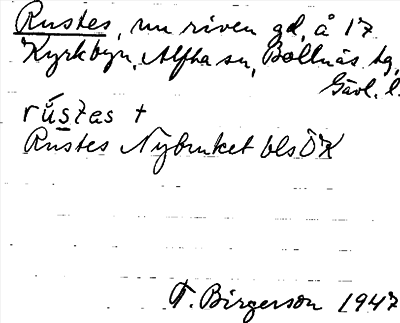 Rustes, nu riven gd, å 17
Kyrkbyn, Alfta sn, Bollnäs tg,
Gävl. l.
rústes +
Rustes Nybruket bls ÖK
T. Birgerson 1947